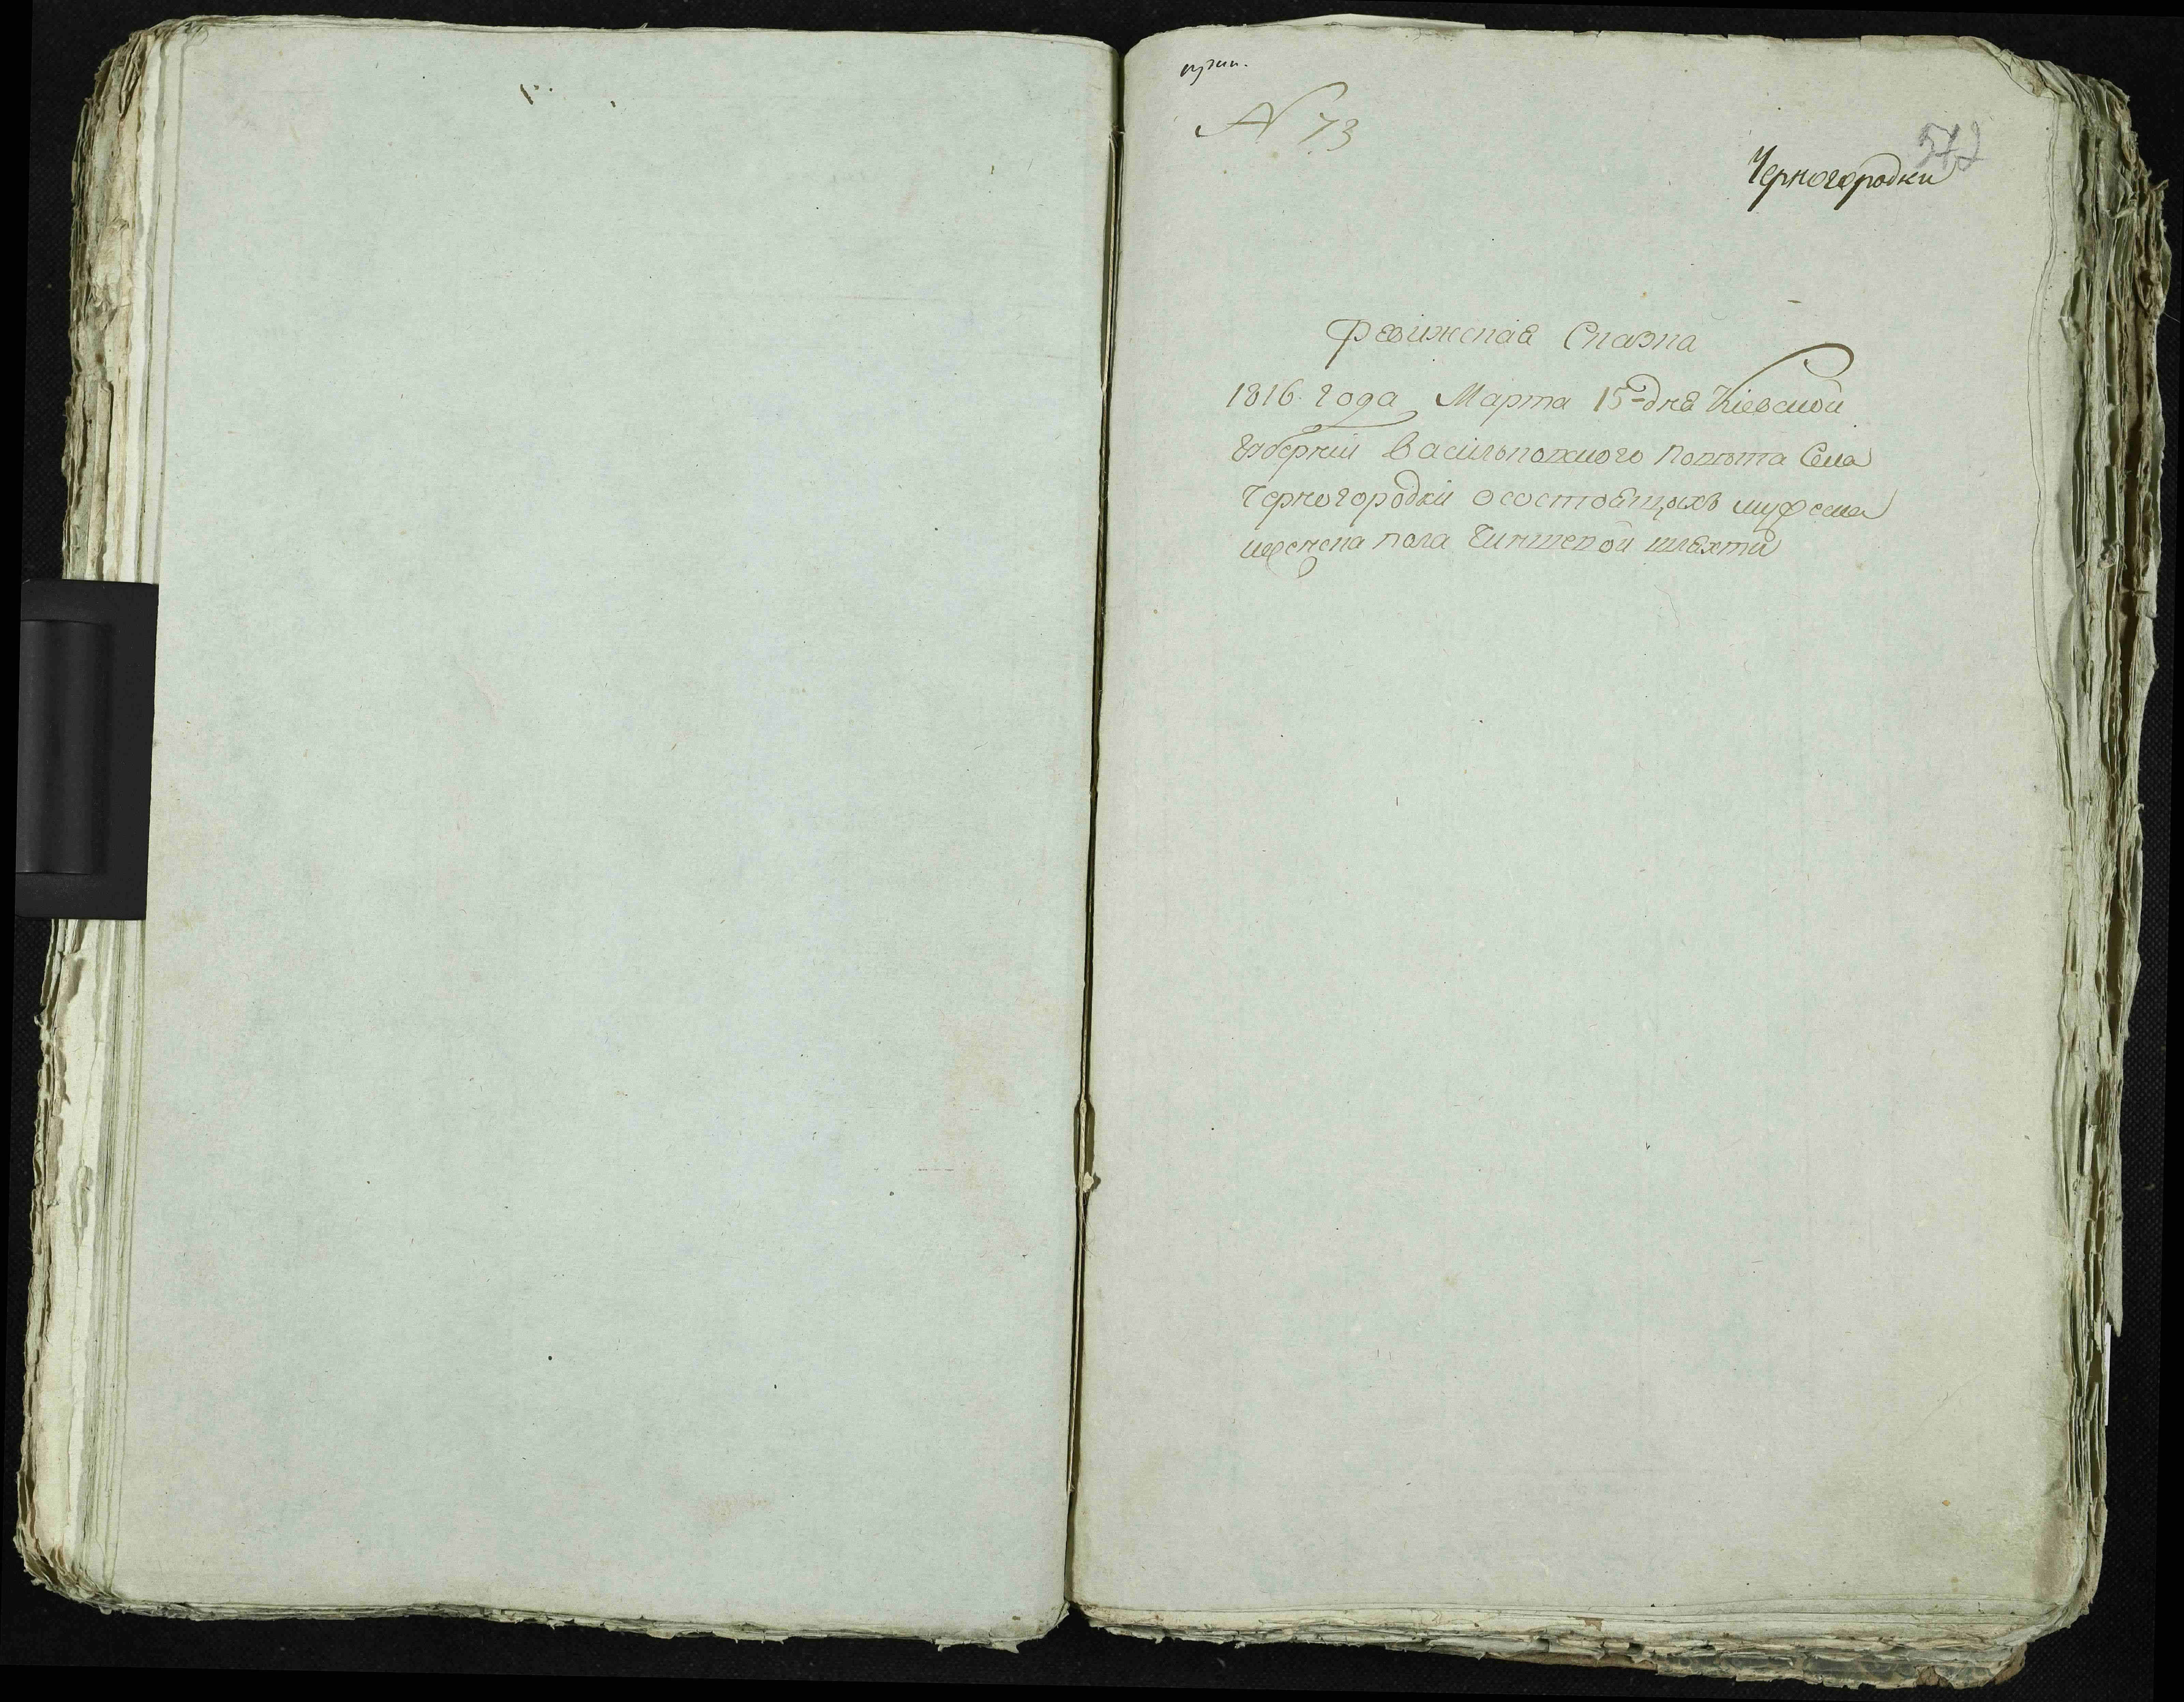 № 73
572
Черногородки
Ревижская Сказка
1816 года Марта 15 дня Кіевской
Губерніи Васильковского повѣта Села
Черногородки о состоящихъ мужеска
и женска пола Чиншевой шляхти